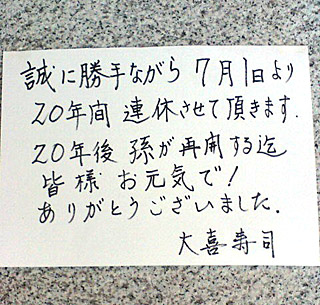 誠に勝手ながら 7月1日より
20年間 連休させて頂きます.
20年後 孫が再開する迄
皆様 お元気で!
ありがとうございました.
大喜寿司